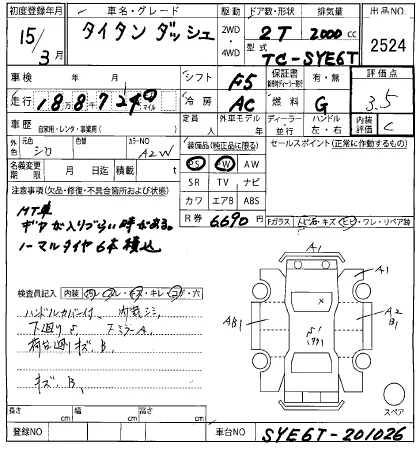 初度登録年月
15/3月
車名・グレード
タイタン ダッシュ
駆動
2WD
・
4WD
ドア数・形状
2T
排気量
2000 cc
型式
TC-SYE6T
出品NO
2524
車検 年 月
シフト F5
保証書
有・無
評価点
3.5
走行
マイル
冷房 AC
燃料 G
車歴
自家用・レンタ・事業用( )
定員
人
外車モデル
年
ディーラー・並行
ハンドル
左・右
内装評価 C
外色
元色
シロ
色替
カラーNO
A2W
装備品(純正品に限る)
PS PW AW
SR TV ナビ
カワ エアB ABS
セールスポイント(正常に作動するもの)
名義変更期限
月 日迄
積載 t
R券 6690 円
Fガラス トビ石・キズ・ヒビ・ワレ・リペア跡
注意事項(欠品・修復・不具合箇所および状態)
MT車
ギヤが入りづらい時がある。
ノーマルタイヤ6本積込
検査員記入
内装
汚レ・スレ・キズ・キレ・コゲ・穴
ハンドルカバー付 内装シミ
下廻りサ
キズ、B、
A1
A1
AB1
A2
B1
スペア
長さ cm
幅 cm
高さ cm
登録NO
車台NO SYE6T-201026